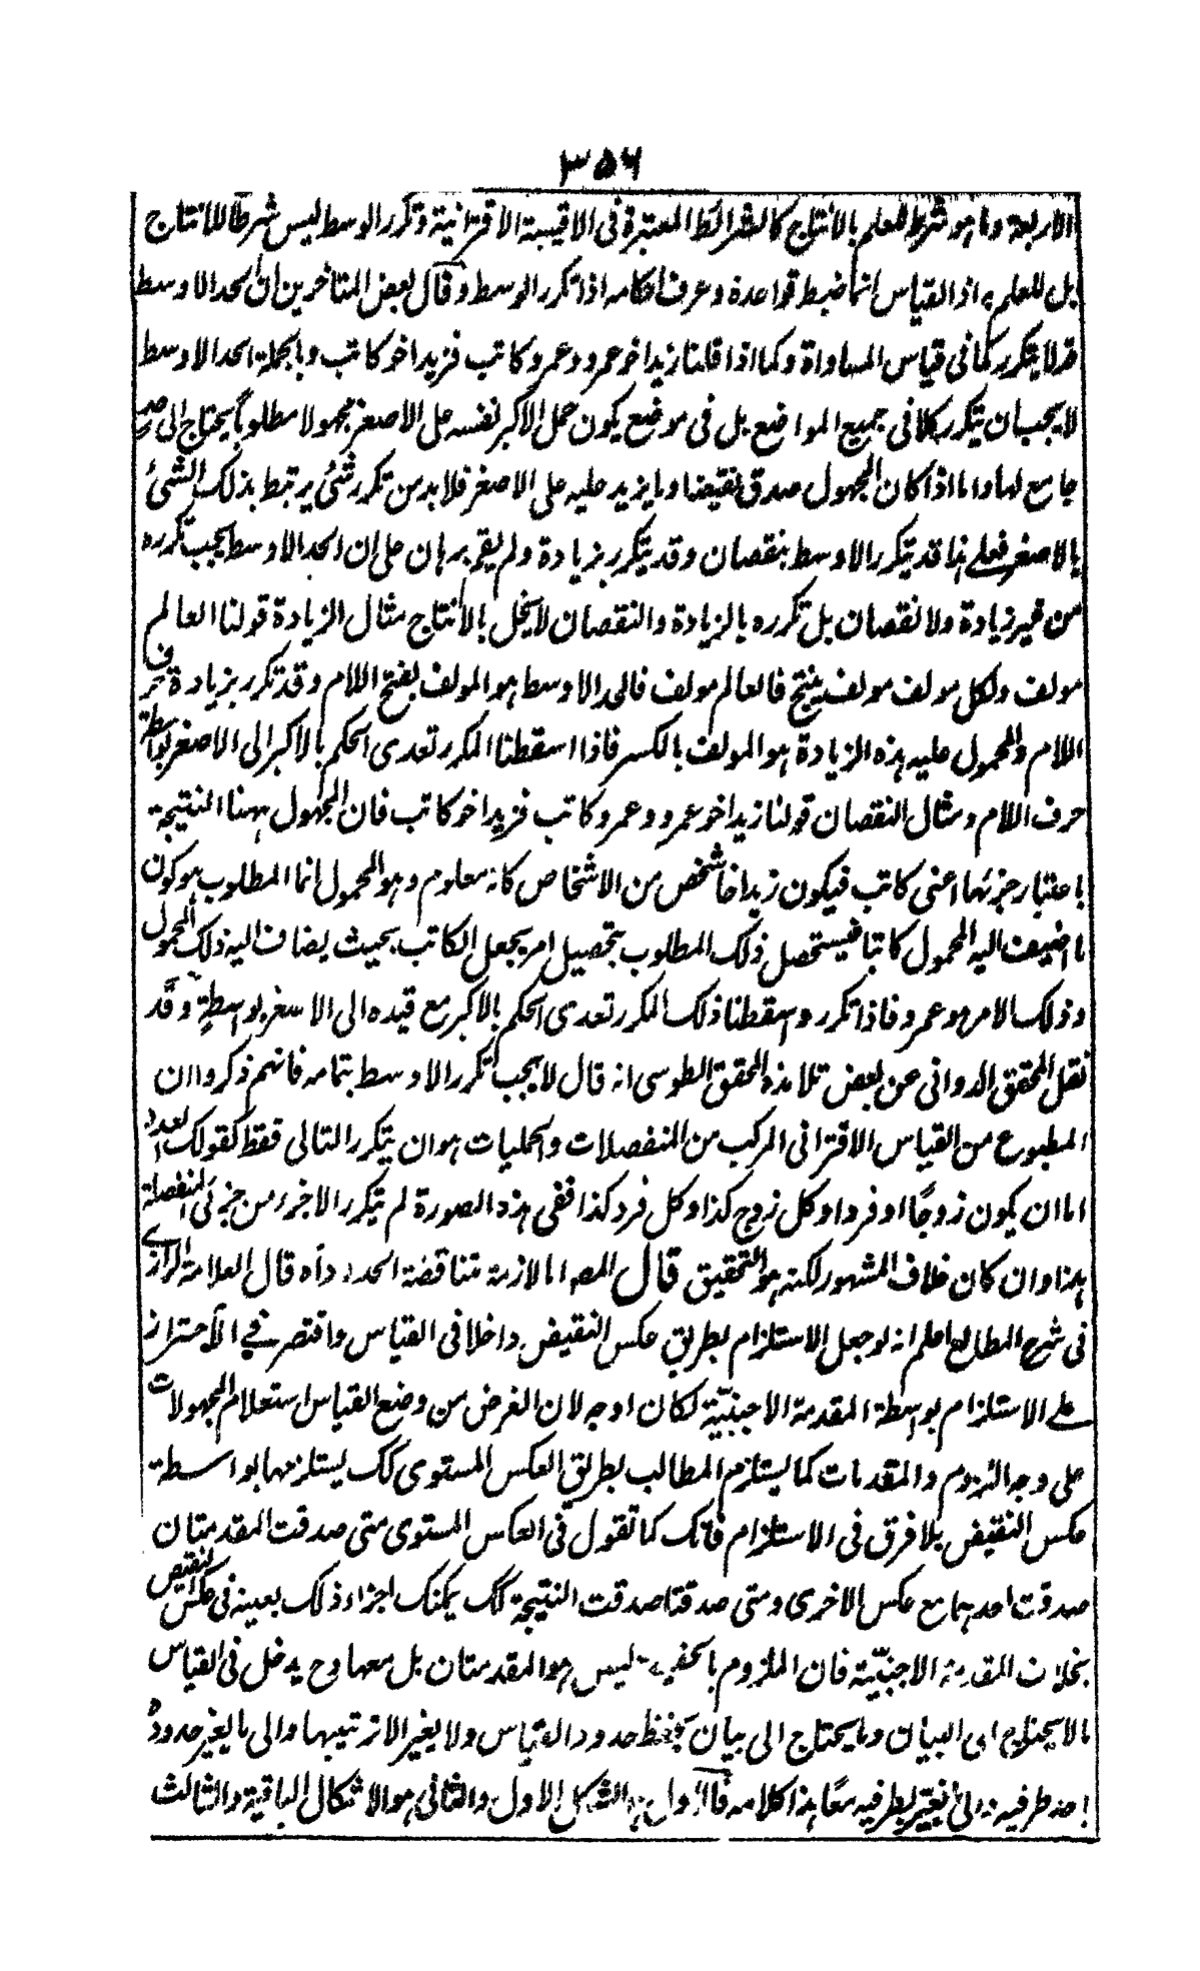 ٣٥٦
الاربعة وما هو شرط للعلم بالانتاج كالشرائط المعتبرة فى الاقيسة الاقترانية وتكرر الوسط ليس شرطا للانتاج
بل للعلم به اذ القياس انما ضبط قواعده وعرف احكامه اذا تكرر الوسط وقال بعض المتاخرين ان الحد الاوسط
قد لا يتكرر كما فى قياس المساواة وكما اذا قلنا زيد اخو عمرو وعمرو كاتب فزيد اخو كاتب وبالجملة الحد الاوسط
لا يجب ان يتكرر كلا فى جميع المواضع بل فى موضع يكون حمل الاكبر نفسه على الاصغر مجهولا مطلوبا يحتاج الى حد
جامع لها واما اذا كان المجهول صدق نقيضا وما يزيد عليه على الاصغر فلا بد من تكرر شئ يرتبط بذلك الشئ
بالاصغر فعلى هذا قد يتكرر الاوسط بنقصان وقد يتكرر بزيادة ولم يقم برهان على ان الحد الاوسط يجب تكرره
من غير زيادة ولا نقصان بل تكرره بالزيادة والنقصان لا يخل بالانتاج مثال الزيادة قولنا العالم
مولف ولكل مولف مولف ينتج فالعالم مولف فالحد الاوسط هو المولف بفتح اللام وقد تكرر بزيادة حرف
اللام والمحمول عليه هذه الزيادة هو المولف بالكسر فاذا اسقطنا المكرر تعدى الحكم بالاكبر الى الاصغر بواسطة
حرف اللام ومثال النقصان قولنا زيد اخو عمرو وعمرو كاتب فزيد اخو كاتب فان المجهول ههنا النتيجة
باعتبار جزئها اعنى كاتب فيكون زيد اخا شخص من الاشخاص كانه معلوم وهو المحمول انما المطلوب هو كون
ما اضيف اليه المحمول كاتبا فيستحصل ذلك المطلوب بتحصيل امر يجعل الكاتب بحيث يضاف اليه ذلك المحمول
وذلك الامر هو عمرو فاذا تكرر واسقطنا ذلك المكرر تعدى الحكم بالاكبر مع قيده الى الاصغر بواسطة وقد
نقل المحقق الدوانى عن بعض تلامذه المحقق الطوسى انه قال لا يجب تكرر الاوسط بتمامه فانهم ذكروا ان
المطبوع من القياس الاقترانى المركب من المنفصلات والحمليات هو ان يتكرر التالى فقط كقولك العدد
اما ان يكون زوجًا او فردا وكل زوج كذا وكل فرد كذا ففى هذه الصورة لم يتكرر الا جزء من جزئى المنفصلة
هذا وان كان خلاف المشهور لكنه هو التحقيق قال المصه اما لازمة متناقضة الحدود اه قال العلامة الرازى
فى شرح المطالع اعلم انه لو جعل الاستلزام بطريق عكس النقيض داخلا فى القياس واقتصر فى الاحتراز
على الاستلزام بواسطة المقدمة الاجنبيّة لكان اوجه لان الغرض من وضع القياس استعلام المجهولات
على وجه اللزوم والمقدمات كما يستلزم المطالب بطريق العكس المستوى كك يستلزمها بواسطة
عكس النقيض بلا فرق فى الاستلزام فانك كما تقول فى العكس المستوى متى صدقت المقدمتان
صدقت احدهما مع عكس الاخرى ومتى صدقتا صدقت النتيجة كك يمكنك اجراء ذلك بعينه فى عكس النقيض
بخلاف المقدمة الاجنبيّة فان الملزوم بالحقيقة ليس هو المقدمتان بل معها وح يدخل فى القياس
ما لا يحتاج الى البيان وما يحتاج الى بيان يحفظ حدود القياس ولا يغير الا ترتيبها والى ما يغير حدوده
احد طرفيه والى تغيّر بطرفيه معًا هذا كلامه فالاول هو الشكل الاول والثانى هو الاشكال الباقية والثالث